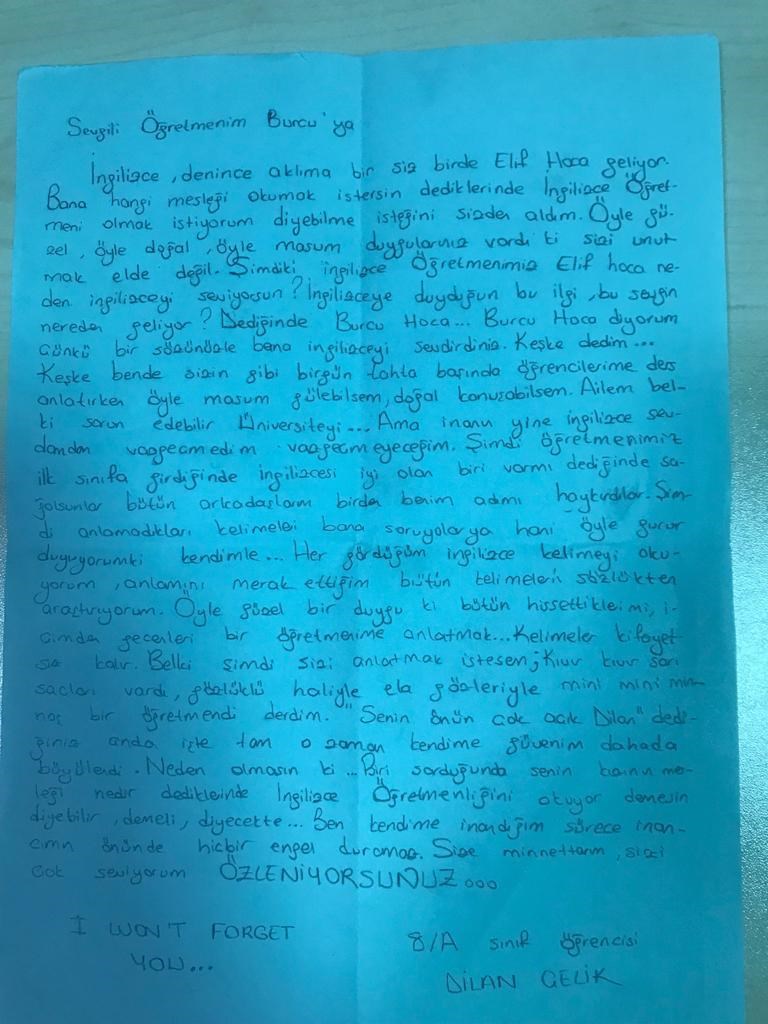 Sevgili Öğretmenim Burcu'ya
İngilizce, denince aklıma bir siz birde Elif Hoca geliyor.
Bana hangi mesleği okumak istersin dediklerinde İngilizce Öğret-
meni olmak istiyorum diyebilme isteğini sizden aldım. Öyle gü-
zel, öyle doğal, öyle masum duygularınız vardı ki sizi unut
mak elde değil. Şimdiki ingilizce Öğretmenimiz Elif hoca ne-
den ingilizceyi seviyorsun? İngilizceye duyduğun bu ilgi, bu sevgin
nereden geliyor? Dediğinde Burcu Hoca... Burcu Hoca diyorum
Çünkü bir sözünüzle bana ingilizceyi sevdirdiniz. Keşke dedim...
Keşke bende sizin gibi birgün tahta başında öğrencilerime ders
anlatırken öyle masum gülebilsem, doğal konuşabilsem. Ailem bel-
ki sorun edebilir Üniversiteyi... Ama inanın yine ingilizce sev-
damdan vazgeçmedim vazgeçmeyeceğim. Şimdi öğretmenimiz
ilk sınıfa girdiğinde ingilizcesi iyi olan biri varmı dediğinde sa-
ğolsunlar bütün arkadaşlarım birden benim adımı haykırdılar. Şim-
di anlamadıkları kelimeleri bana soruyolarya hani öyle gurur
duyuyorumki kendimle... Her gördüğüm ingilizce kelimeyi oku-
yorum, anlamını merak ettiğim bütün kelimeleri sözlükten
araştırıyorum. Öyle güzel bir duygu ki bütün hissettiklerimi, i-
çimden geçenleri bir öğretmenime anlatmak... Kelimeler kifayet
siz kalır. Belki şimdi sizi anlatmak istesem; Kıvır kıvır sarı
saçları vardı, gözlüklü haliyle ela gözleriyle mini mini min-
noş bir öğretmendi derdim. "Senin önün çok açık Dilan" dedi-
ğiniz anda işte tam o zaman kendime güvenim dahada
büyülendi. Neden olmasın ki... Biri sorduğunda senin kızının me-
leği nedir dediklerinde İngilizce Öğretmenliğini okuyor demesin
diyebilir, demeli, diyecekte... Ben kendime inandığım sürece inan-
cımın önünde hiçbir engel duramaz. Size minnettarım, sizi
çok seviyorum ÖZLENİYORSUNUZ...
I WON'T FORGET
YOU...
8/A sınıf öğrencisi
DİLAN ÇELİK